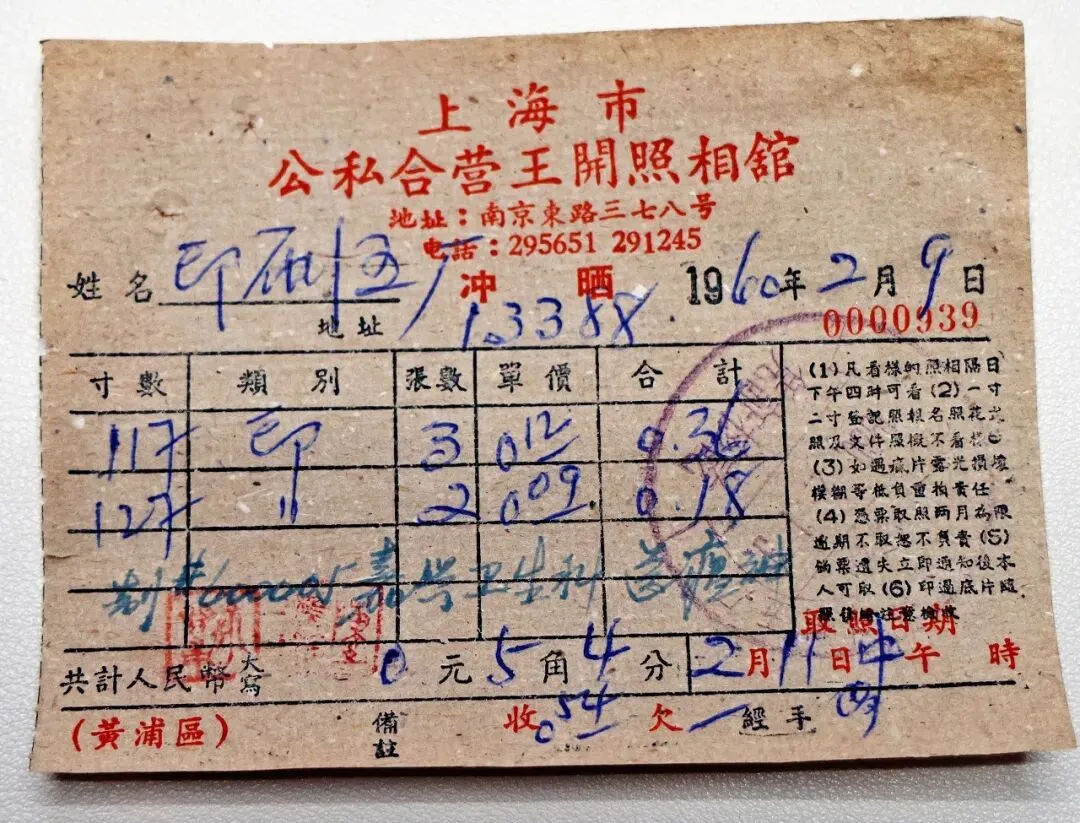 上海市
公私合营王開照相舘
地址：南京東路三七八号
电話：295651 291245
姓名 印刷五厂 冲晒 1960年2月9日
地址 1.3388 0000939
寸數 類別 張數 單價 合計
117 印 3 012 0.36
127 〃 2 009 0.18
(1)凡看樣的照相隔日
下午四時可看(2)一寸
二寸登記照報名照花式
照及文件照概不看樣
(3)如遇底片露光損壞
模糊等祗負重拍責任
(4)憑票取照两月為限
逾期不取恕不負責(5)
倘票遺失立即通知後本
人可取(6)印過底片隨
取照日期
共計人民幣大寫 0元5角4分 2月11日中午 時
(黃浦區) 備註 收 054 欠 一 經手